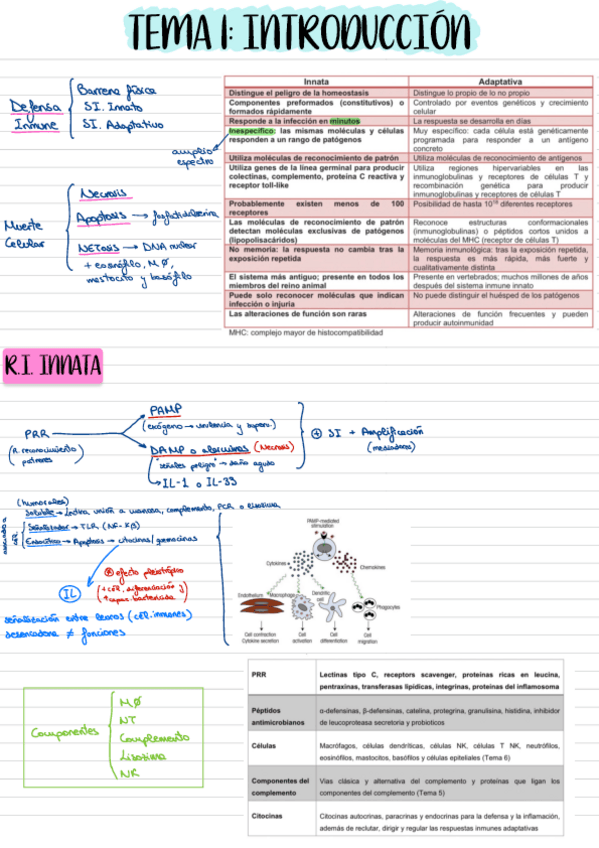 TEMA 1: INTRODUCCIÓN
Defensa Inmune
Barrera física
SI. Innato
SI. Adaptativo
amplio espectro
Muerte Celular
Necrosis
Apoptosis → fosfatidilserina
NETosis → DNA nuclear
+ eosnófilo, MØ,
mastocito y basófilo
Innata | Adaptativa
Distingue el peligro de la homeostasis | Distingue lo propio de lo no propio
Componentes preformados (constitutivos) o formados rápidamente | Controlado por eventos genéticos y crecimiento celular
Responde a la infección en minutos | La respuesta se desarrolla en días
Inespecífico: las mismas moléculas y células responden a un rango de patógenos | Muy específico: cada célula está genéticamente programada para responder a un antígeno concreto
Utiliza moléculas de reconocimiento de patrón | Utiliza moléculas de reconocimiento de antígenos
Utiliza genes de la línea germinal para producir colectinas, complemento, proteína C reactiva y receptor toll-like | Utiliza regiones hipervariables en las inmunoglobulinas y receptores de células T y recombinación genética para producir inmunoglobulinas y receptores de células T
Probablemente existen menos de 100 receptores | Posibilidad de hasta 10¹⁸ diferentes receptores
Las moléculas de reconocimiento de patrón detectan moléculas exclusivas de patógenos (lipopolisacáridos) | Reconoce estructuras conformacionales (inmunoglobulinas) o péptidos cortos unidos a moléculas del MHC (receptor de células T)
No memoria: la respuesta no cambia tras la exposición repetida | Memoria inmunológica: tras la exposición repetida, la respuesta es más rápida, más fuerte y cualitativamente distinta
El sistema más antiguo; presente en todos los miembros del reino animal | Presente en vertebrados; muchos millones de años después del sistema inmune innato
Puede solo reconocer moléculas que indican infección o injuria | No puede distinguir el huésped de los patógenos
Las alteraciones de función son raras | Alteraciones de función frecuentes y pueden producir autoinmunidad
MHC: complejo mayor de histocompatibilidad
R.I. INNATA
PRR
(R. reconocimiento)
patrones
PAMP
(exógeno →
DAMP o alarminas (Necrosis)
"señales peligro" → daño agudo
→ IL-1 o IL-33
⊕ SI + Amplificación
(mediadores)
(humorales)
Soluble → Lectina unión a manosa, complemento, PCR o lisozima
asociado a cél.
Señalizador → TLR (NF-KB)
Endocítico → Apoptosis → citocinas/
⊕ efecto pleiotrópico
(+ cél, diferenciación y
+ capac. bactericida)
IL
señalización entre leucos (cél. inmunes)
desencadena ≠ funciones
PAMP-mediated stimulation
Cytokines
Chemokines
Endothelium
Macrophage
Dendritic cell
Phagocytes
Cell contraction
Cytokine secretion
Cell activation
Cell differentiation
Cell migration
Componentes
MØ
NT
Complemento
Lisozima
NK
PRR | Lectinas tipo C, receptors scavenger, proteínas ricas en leucina, pentraxinas, transferasas lipídicas, integrinas, proteínas del inflamosoma
Péptidos antimicrobianos | α-defensinas, β-defensinas, catelina, protegrina, granulisina, histidina, inhibidor de leucoproteasa secretoria y probioticos
Células | Macrófagos, células dendríticas, células NK, células T NK, neutrófilos, eosinófilos, mastocitos, basófilos y células epiteliales (Tema 6)
Componentes del complemento | Vías clásica y alternativa del complemento y proteínas que ligan los componentes del complemento (Tema 5)
Citocinas | Citocinas autocrinas, paracrinas y endocrinas para la defensa y la inflamación, además de reclutar, dirigir y regular las respuestas inmunes adaptativas